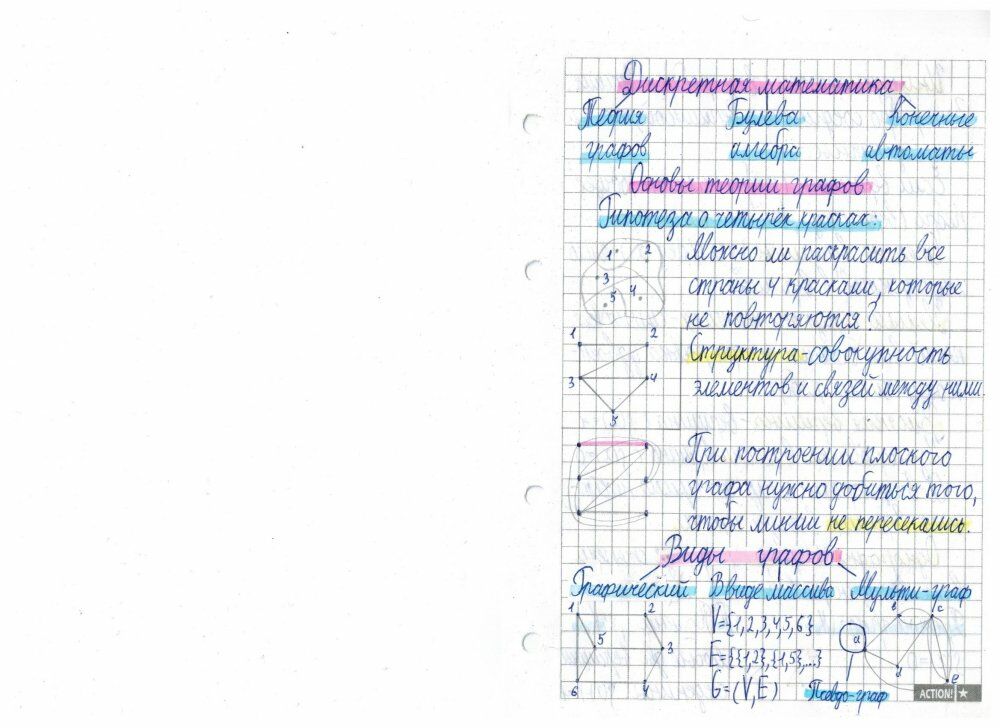 Дискретная математика
Теория Булева Конечные
графов алгебра автоматы
Основы теории графов
Гипотеза о четырёх красках:
1 2 3 5 4
Можно ли раскрасить все
страны 4 красками, которые
не повторяются?
1 2 3 4 5
Структура - совокупность
элементов и связей между ними.
При построении плоского
графа нужно добиться того,
чтобы линии не пересекались.
Виды графов
Графический В виде массива Мульти-граф
1 2 5 3 6 4
V={1,2,3,4,5,6}
E={{1,2},{1,5},...}
G=(V,E)
b c a d e
Псевдо-граф
ACTION!